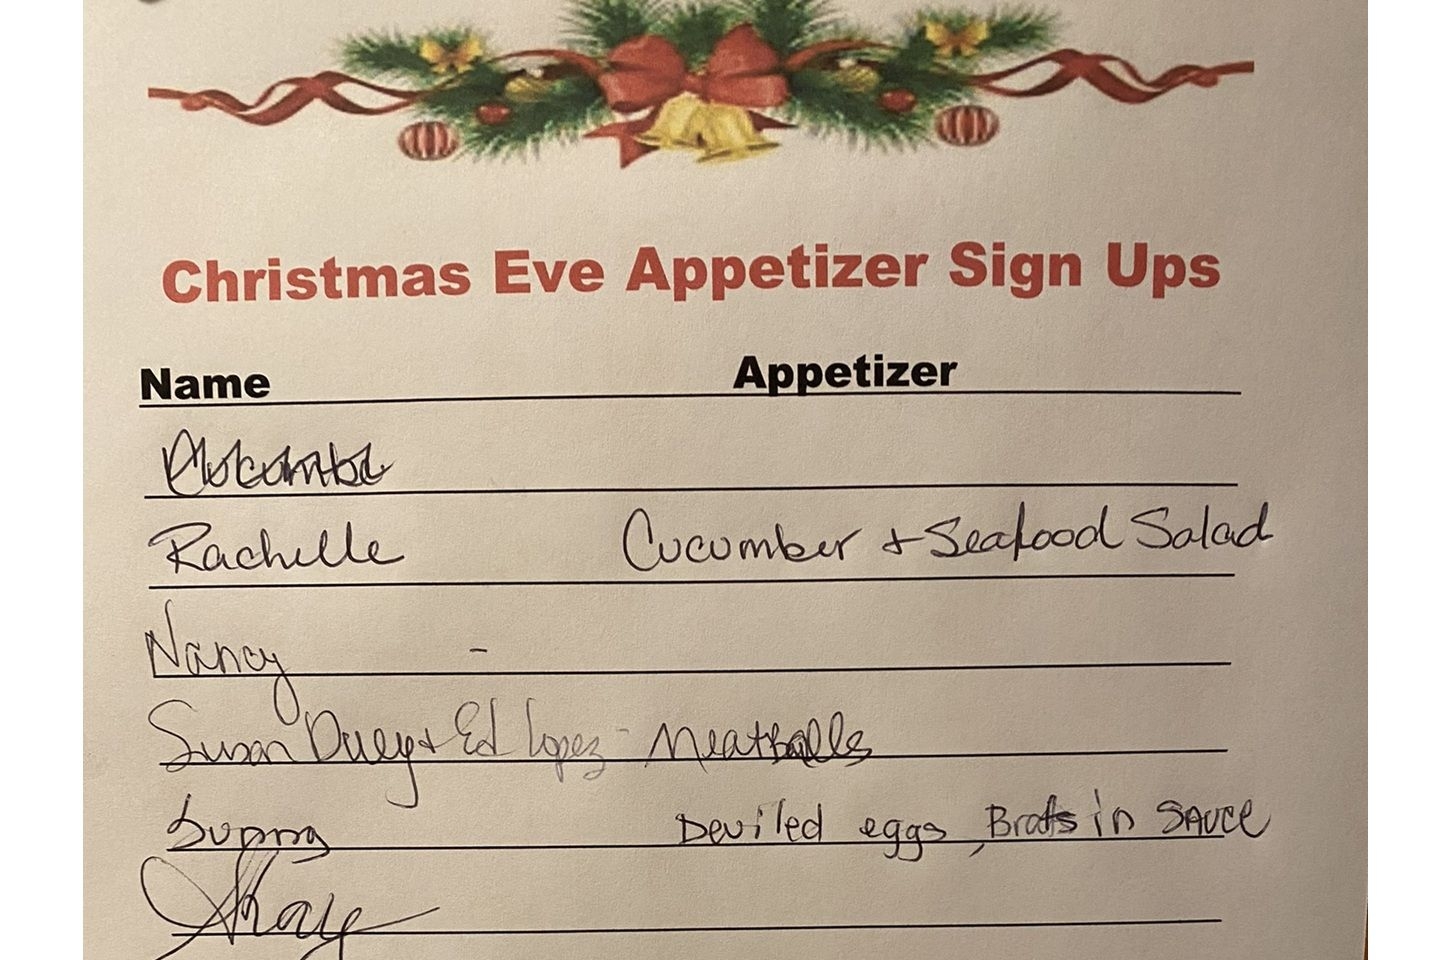 Christmas Eve Appetizer Sign Ups
Name Appetizer
Rachelle Cucumber + Seafood Salad
Nancy -
Susan Duey + Ed Lopez - Meatballs
Deviled eggs, Brats in SAUCE